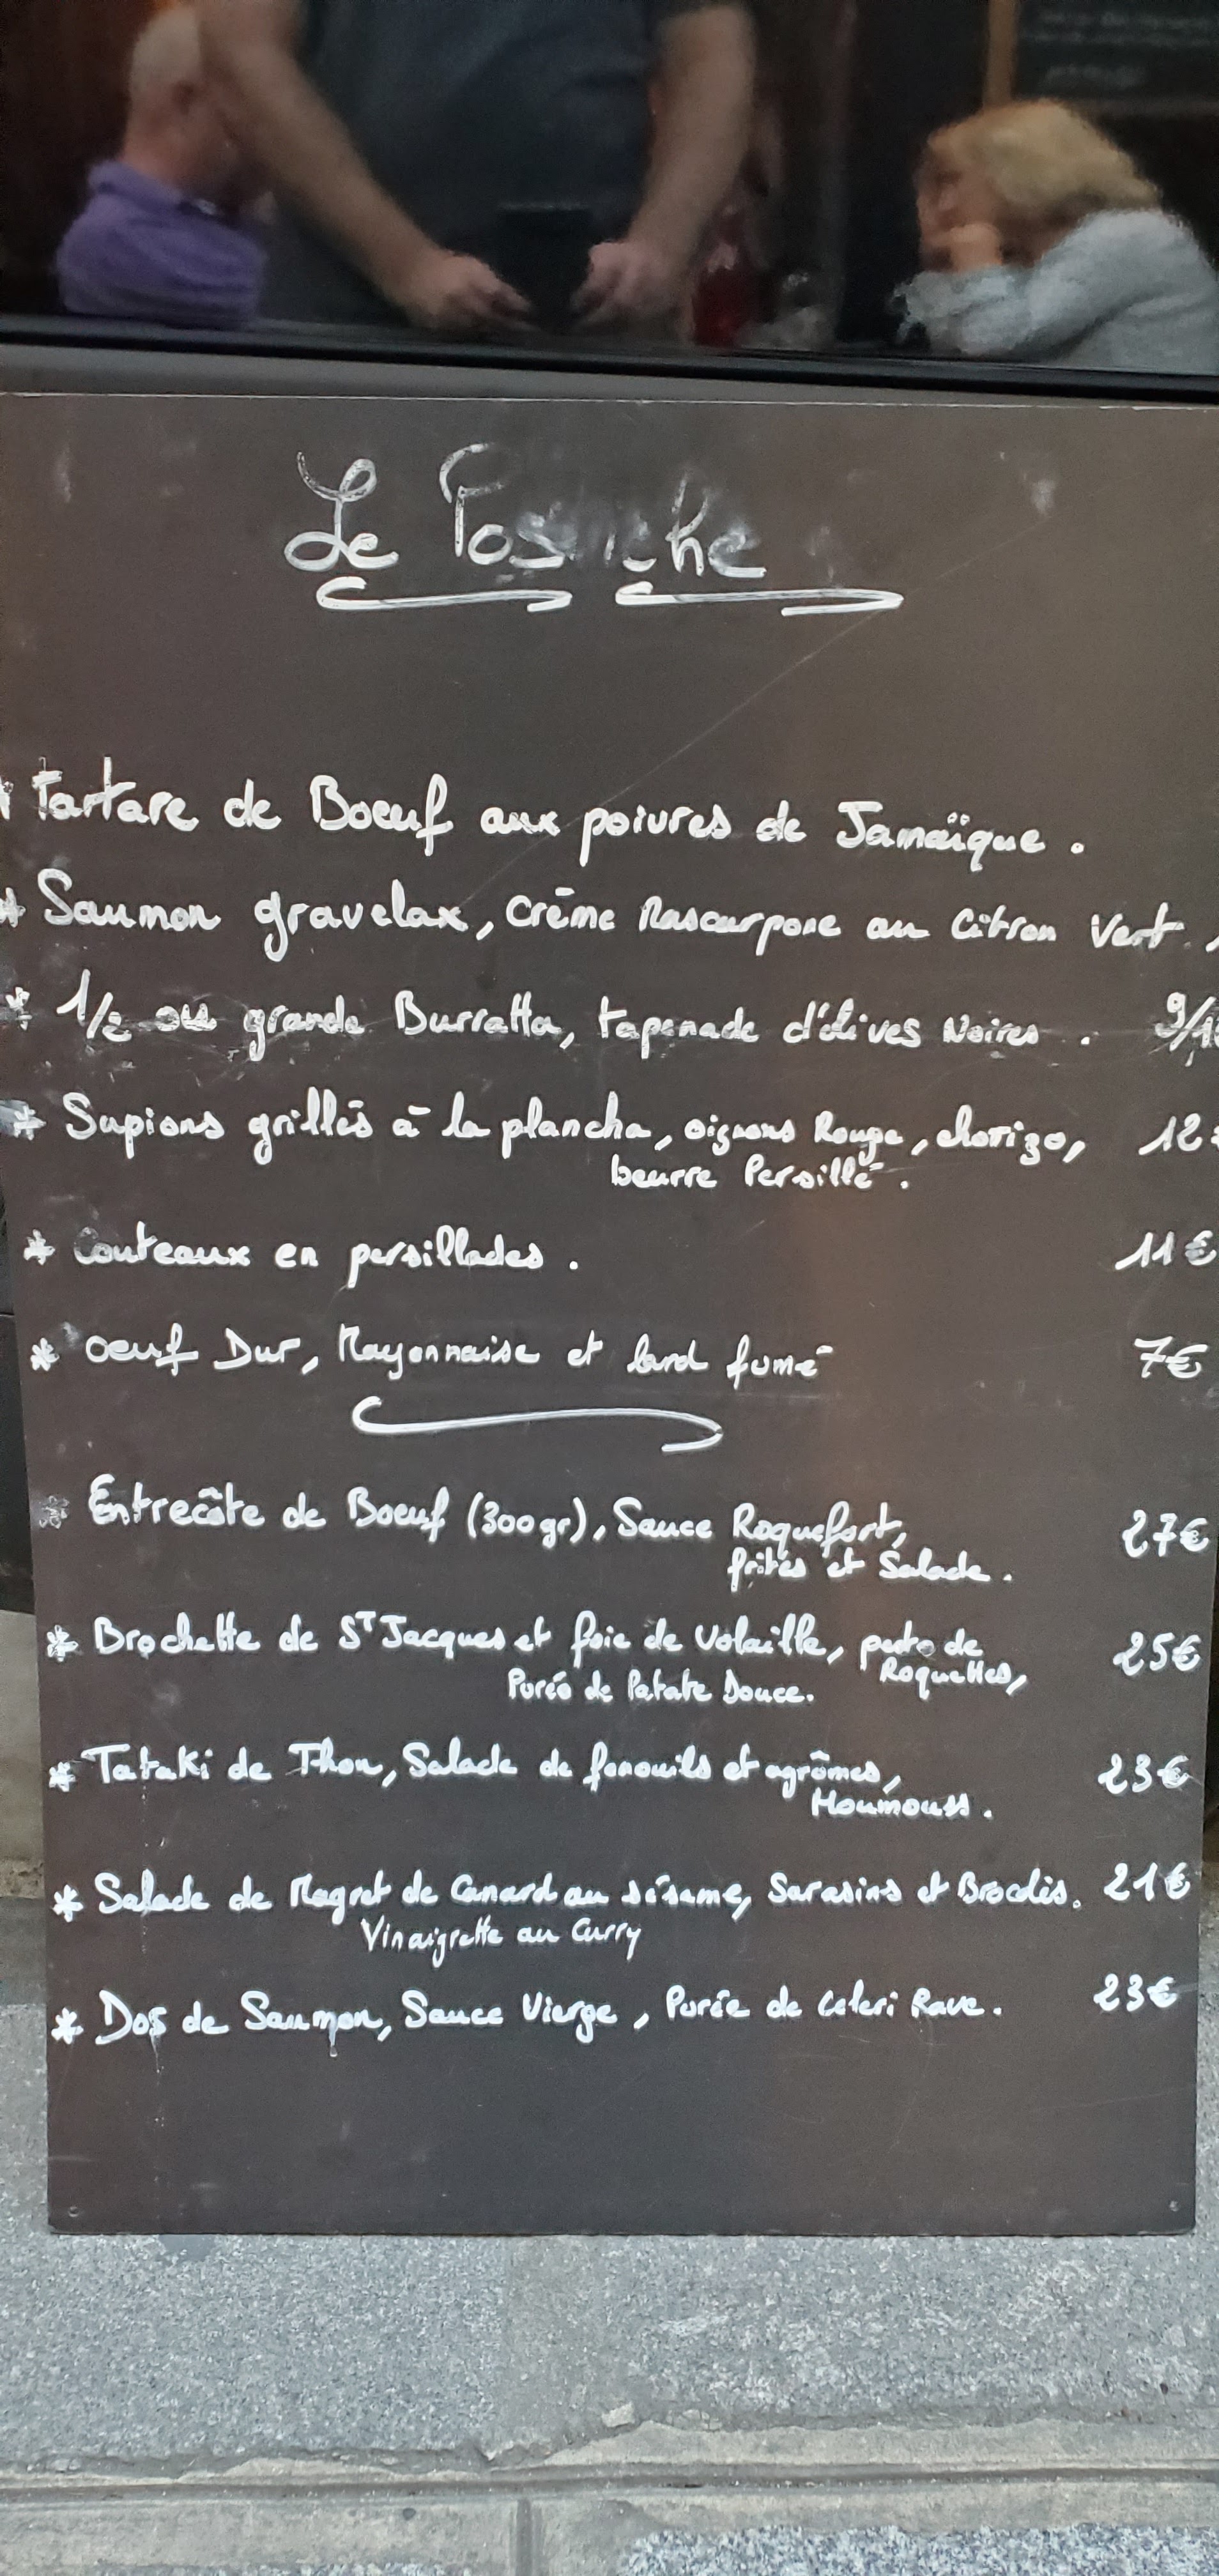 Le
Tartare de Boeuf aux poivres de Jamaïque.
* Saumon gravelax, Crème Mascarpone au Citron Vert.
* 1/2 ou grande Burratta, tapenade d'olives Noires. 9/1
* Supions grillés à la plancha, oignons Rouge, chorizo, 12
beurre Persillé.
* Couteaux en persillades. 11€
* Oeuf Dur, Mayonnaise et lard fumé 7€
* Entrecôte de Boeuf (300gr), Sauce Roquefort, 27€
frites et Salade.
* Brochette de ST Jacques et foie de Volaille, pesto de 25€
Roquettes,
Purée de Patate Douce.
* Tataki de Thon, Salade de fenouils et agrûmes, 23€
Houmouss.
* Salade de Magret de Canard au sésame, Sarasins et Brocolis. 21€
Vinaigrette au Curry
* Dos de Saumon, Sauce Vierge, Purée de Céleri Rave. 23€